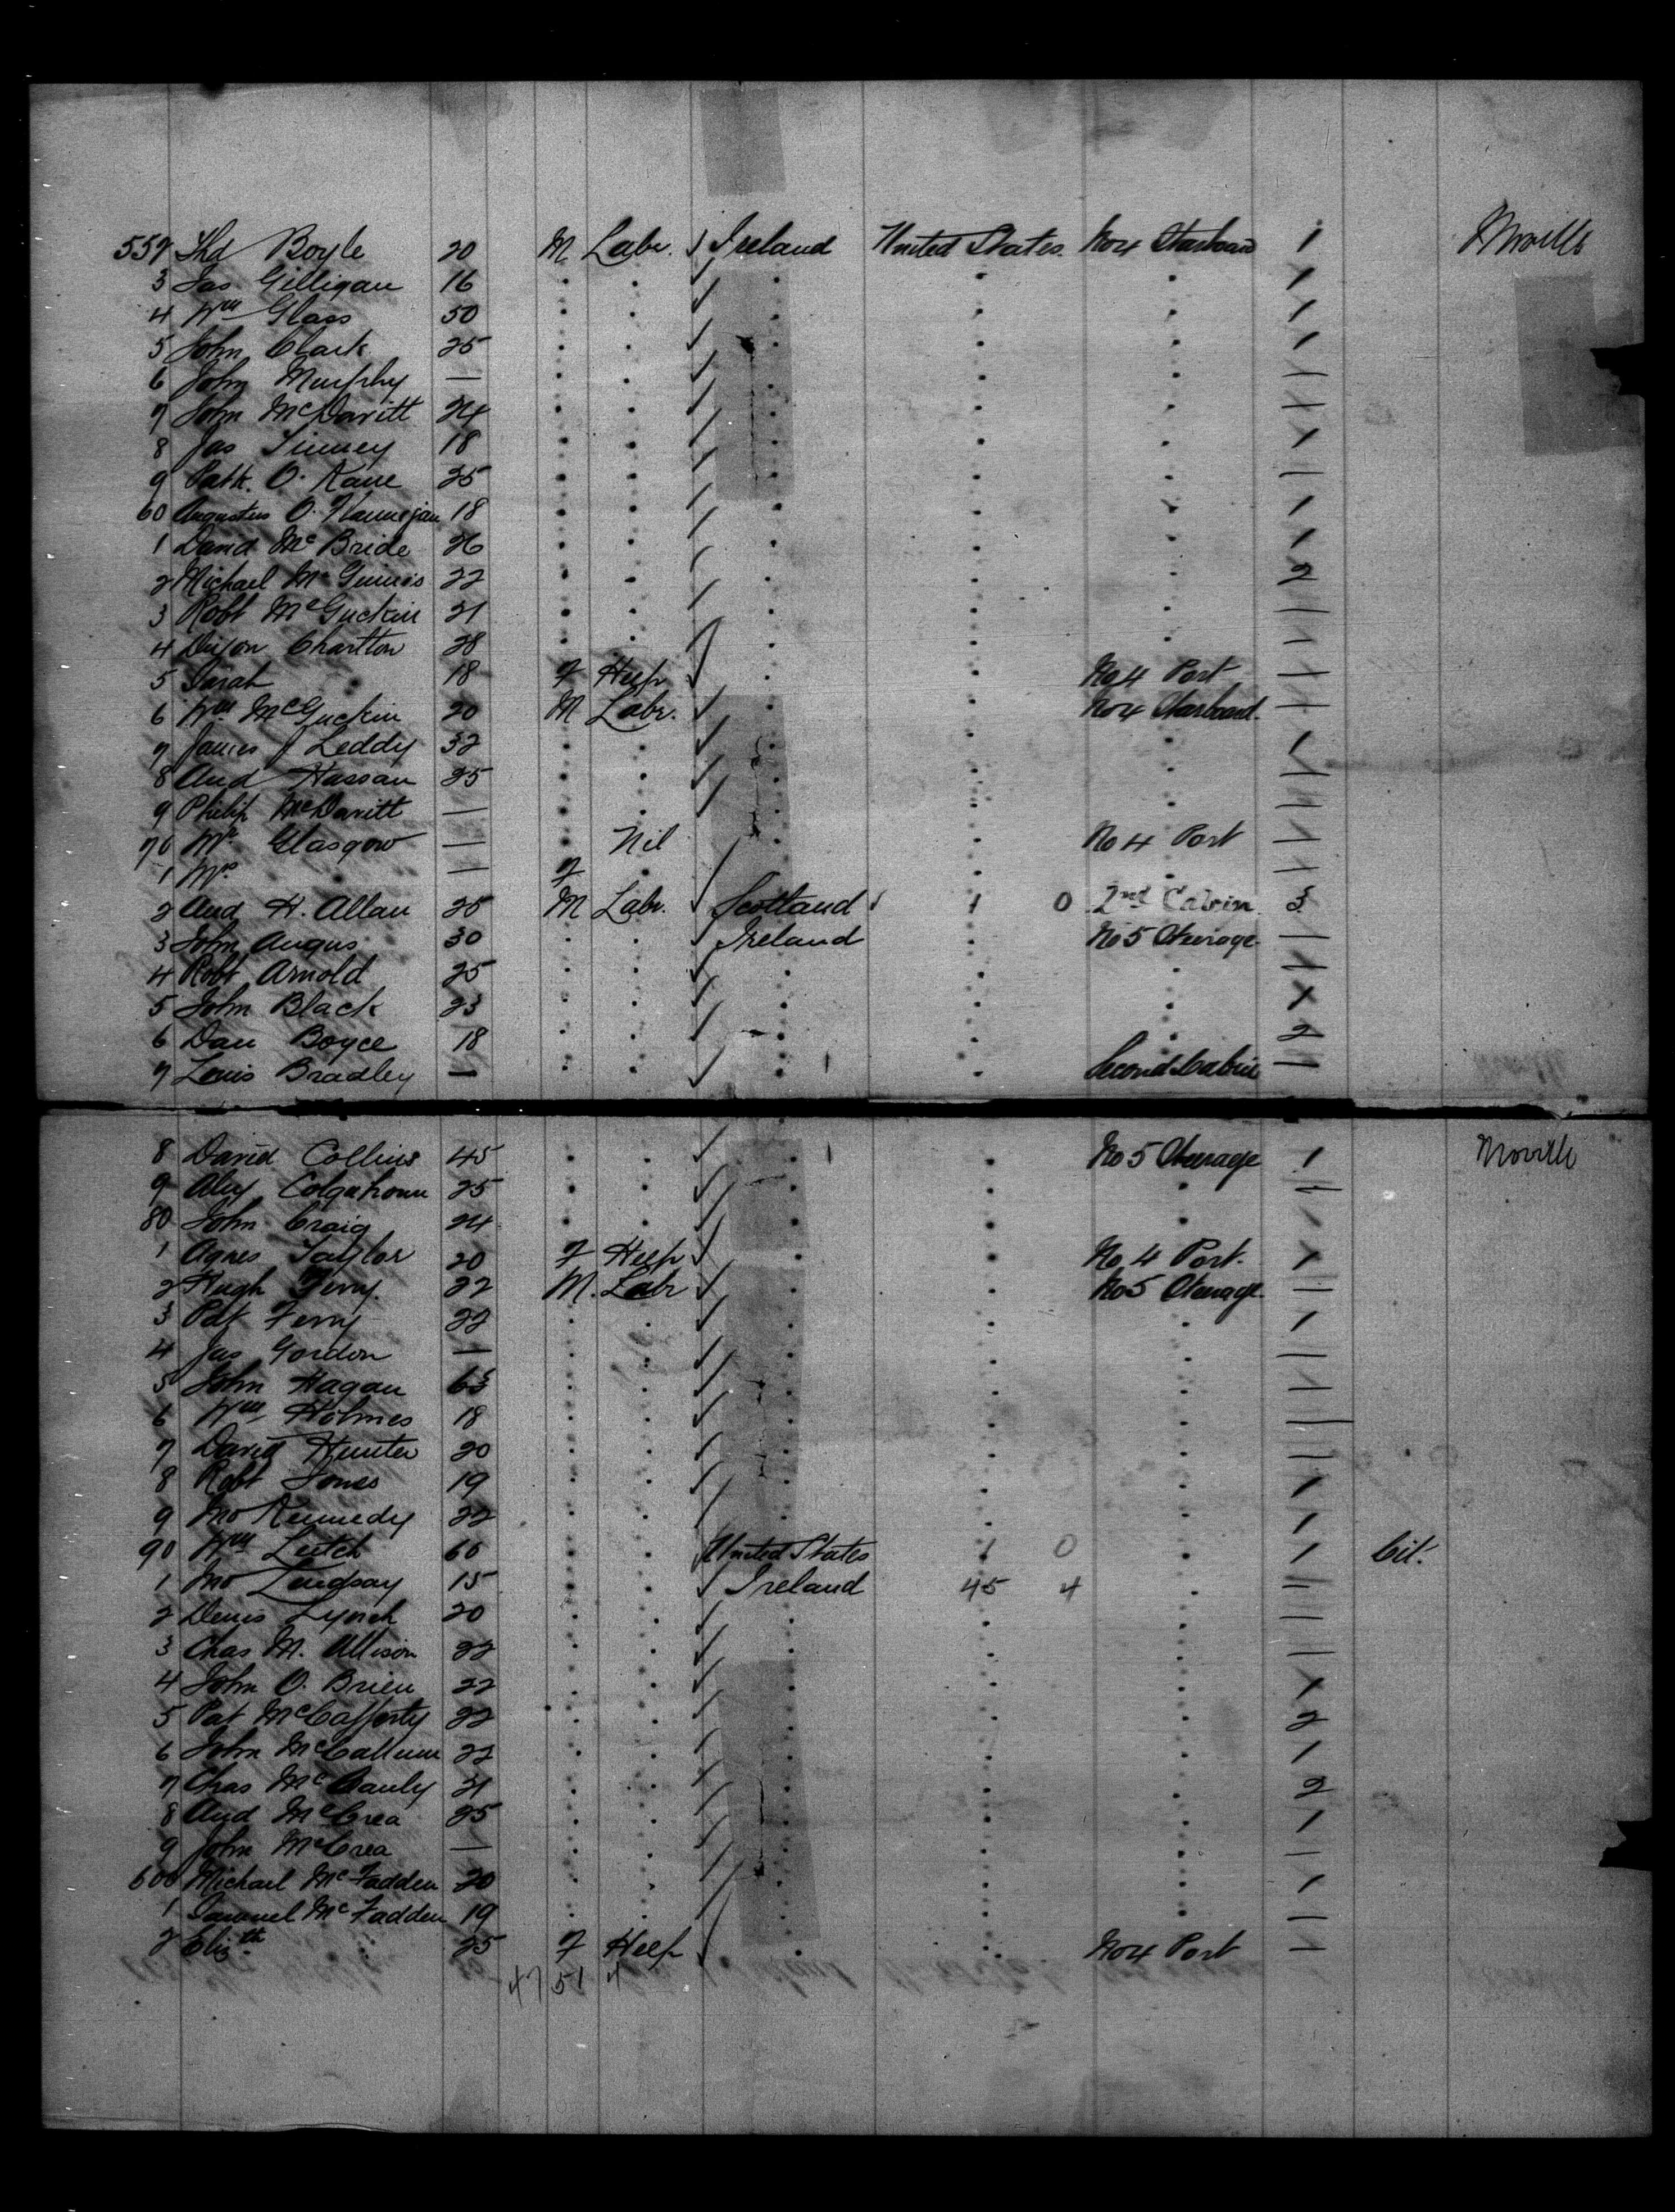 552 Thd Boyle 20 M Labr. ✓ Ireland United States. No 4 Starboard 1 Moville
3 Jas Gilligan 16 . . ✓ . . . 1
4 Wm Glass 50 . . ✓ . . . 1
5 John Clark 25 . . ✓ . . . 1
6 John Murphy — . . ✓ . . . —
7 John McDavitt 24 . . ✓ . . . —
8 Jas Tinney 18 . . ✓ . . . 1
9 Patk. O. Kane 25 . . ✓ . . . —
60 Augustus O. 18 . . ✓ . . . 1
1 David McBride 26 . . ✓ . . . 1
2 Michael McGuinis 22 . . ✓ . . . 2
3 Robt McGuckin 21 . . ✓ . . . —
4 Dixon Charlton 28 . . ✓ . . . —
5 Sarah . 18 F Help ✓ . . No 4 Port —
6 Wm McGuckin 20 M Labr. ✓ . . No 4 Starboard. —
7 James J Leddy 32 . . ✓ . . . 1
8 And Hassan 25 . . ✓ . . . —
9 Philip McDavitt — . . ✓ . . . —
70 Mr Glasgow — . Nil . . No 4 Port —
1 Mrs . — F . ✓ . . . —
2 And H. Allan 25 M Labr. ✓ Scotland 1 0 2nd Cabin 3
3 John Angus 30 . . ✓ Ireland . No 5 Steerage —
4 Robt Arnold 25 . . ✓ . . . —
5 John Black 23 . . ✓ . . . 1
6 Dan Boyce 18 . . ✓ . . . 2
7 Louis Bradley — . . ✓ . . Second Cabin —
8 David Collins 45 . . ✓ . . No 5 Steerage 1 Moville
9 Alex Colqahoun 25 . . ✓ . . . —
80 John Craig 24 . . ✓ . . .
1 Agnes Taylor 20 F Help ✓ . . No 4 Port. 1
2 Hugh Ferry. 22 M. Labr ✓ . . No 5 Steerage. —
3 Pat Ferry 22 . . ✓ . . . 1
4 Jas Gordon — . . ✓ . . . —
5 John Hagan . . ✓ . . . —
6 Wm Holmes 18 . . ✓ . . . —
7 David Hunter 20 . . ✓ . . . —
8 Robt Jones 19 . . ✓ . . . 1
9 Jno Kennedy 22 . . ✓ . . . 1
90 Wm Leitch 60 . . ✓ United States 1 0 . 1 Cit.
1 Jno Lindsay 15 . . ✓ Ireland 45 4 . —
2 Denis Lynch 20 . . ✓ . . . —
3 Chas M. Allison 22 . . ✓ . . . —
4 John O. Brien 22 . . ✓ . . . 1
5 Pat McCafferty 22 . . ✓ . . . 2
6 John McCallum 22 . . ✓ . . . 1
7 Chas McCauly 21 . . ✓ . . . 2
8 And McCrea 25 . . ✓ . . . 1
9 John McCrea — . . ✓ . . . —
600 Michael McFadden 20 . . ✓ . . . 1
1 Samuel McFadden 19 . . ✓ . . . —
2 Elizth . 25 F Help ✓ . . No 4 Port —
47 51 4